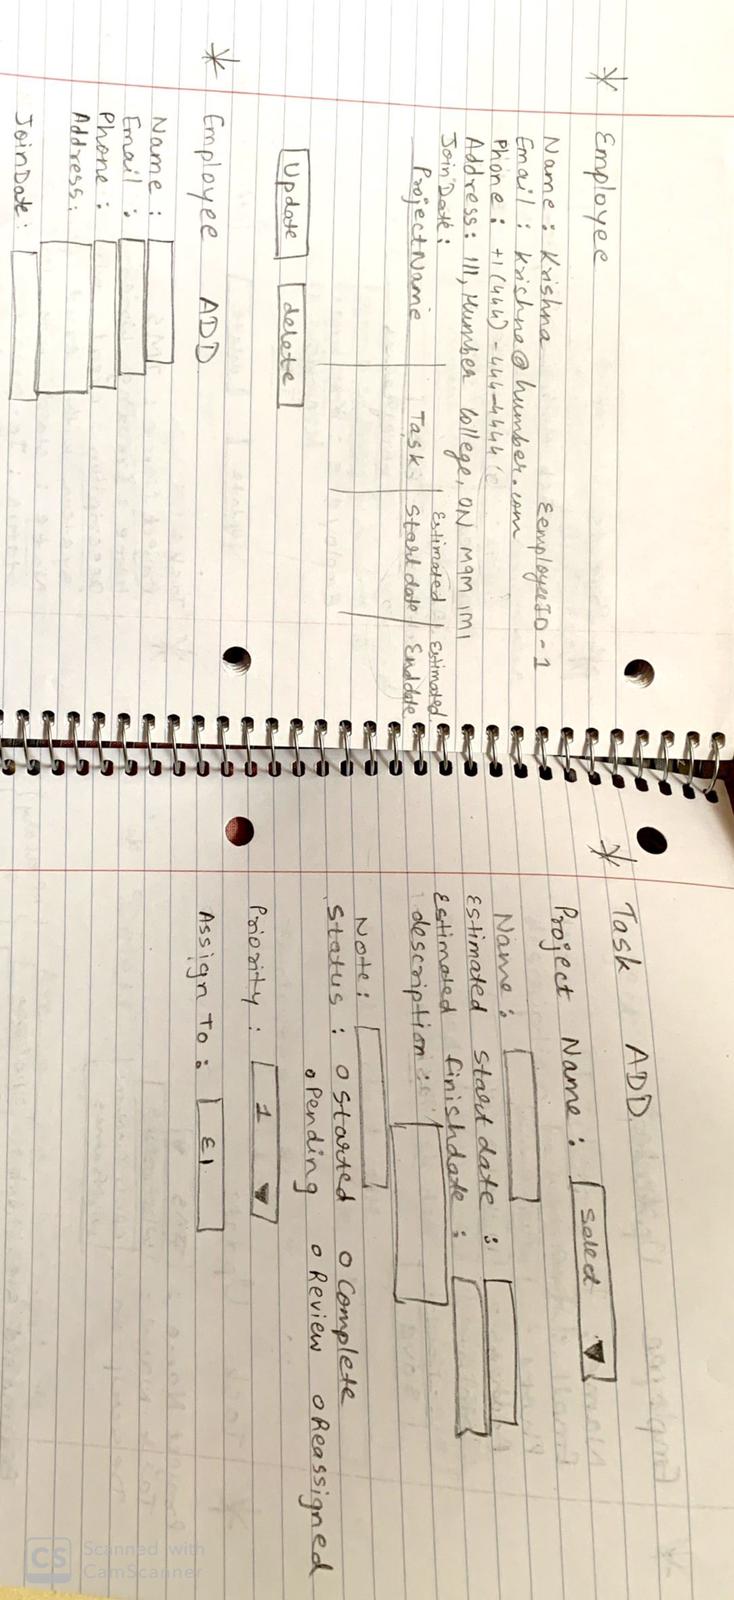 * Employee
Name : Krishna EemployeeID - 1
Email : krishna@humber.com
Phone : +1(444)-444-4444
Address : 111, Humber College, ON M9M 1M1
Join Date :
Project Name | Task | Estimated Start date | Estimated End date
Update delete
* Employee ADD
Name :
Email :
Phone :
Address :
Join Date :
* Task ADD
Project Name : Select ▼
Name :
Estimated Start date :
Estimated finish date :
description :
Note :
Status : o Started o Complete
o Pending o Review o Reassigned
Priority : 1 ▼
Assign To : E1
CS Scanned with
CamScanner